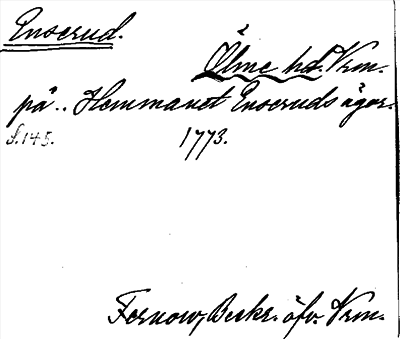 Enserud.
Ölme hd. Vrm.
på.. Hemmanet Enseruds ägor.
S.145. 1773.
Fernow, Beskr. öfv. Vrm.